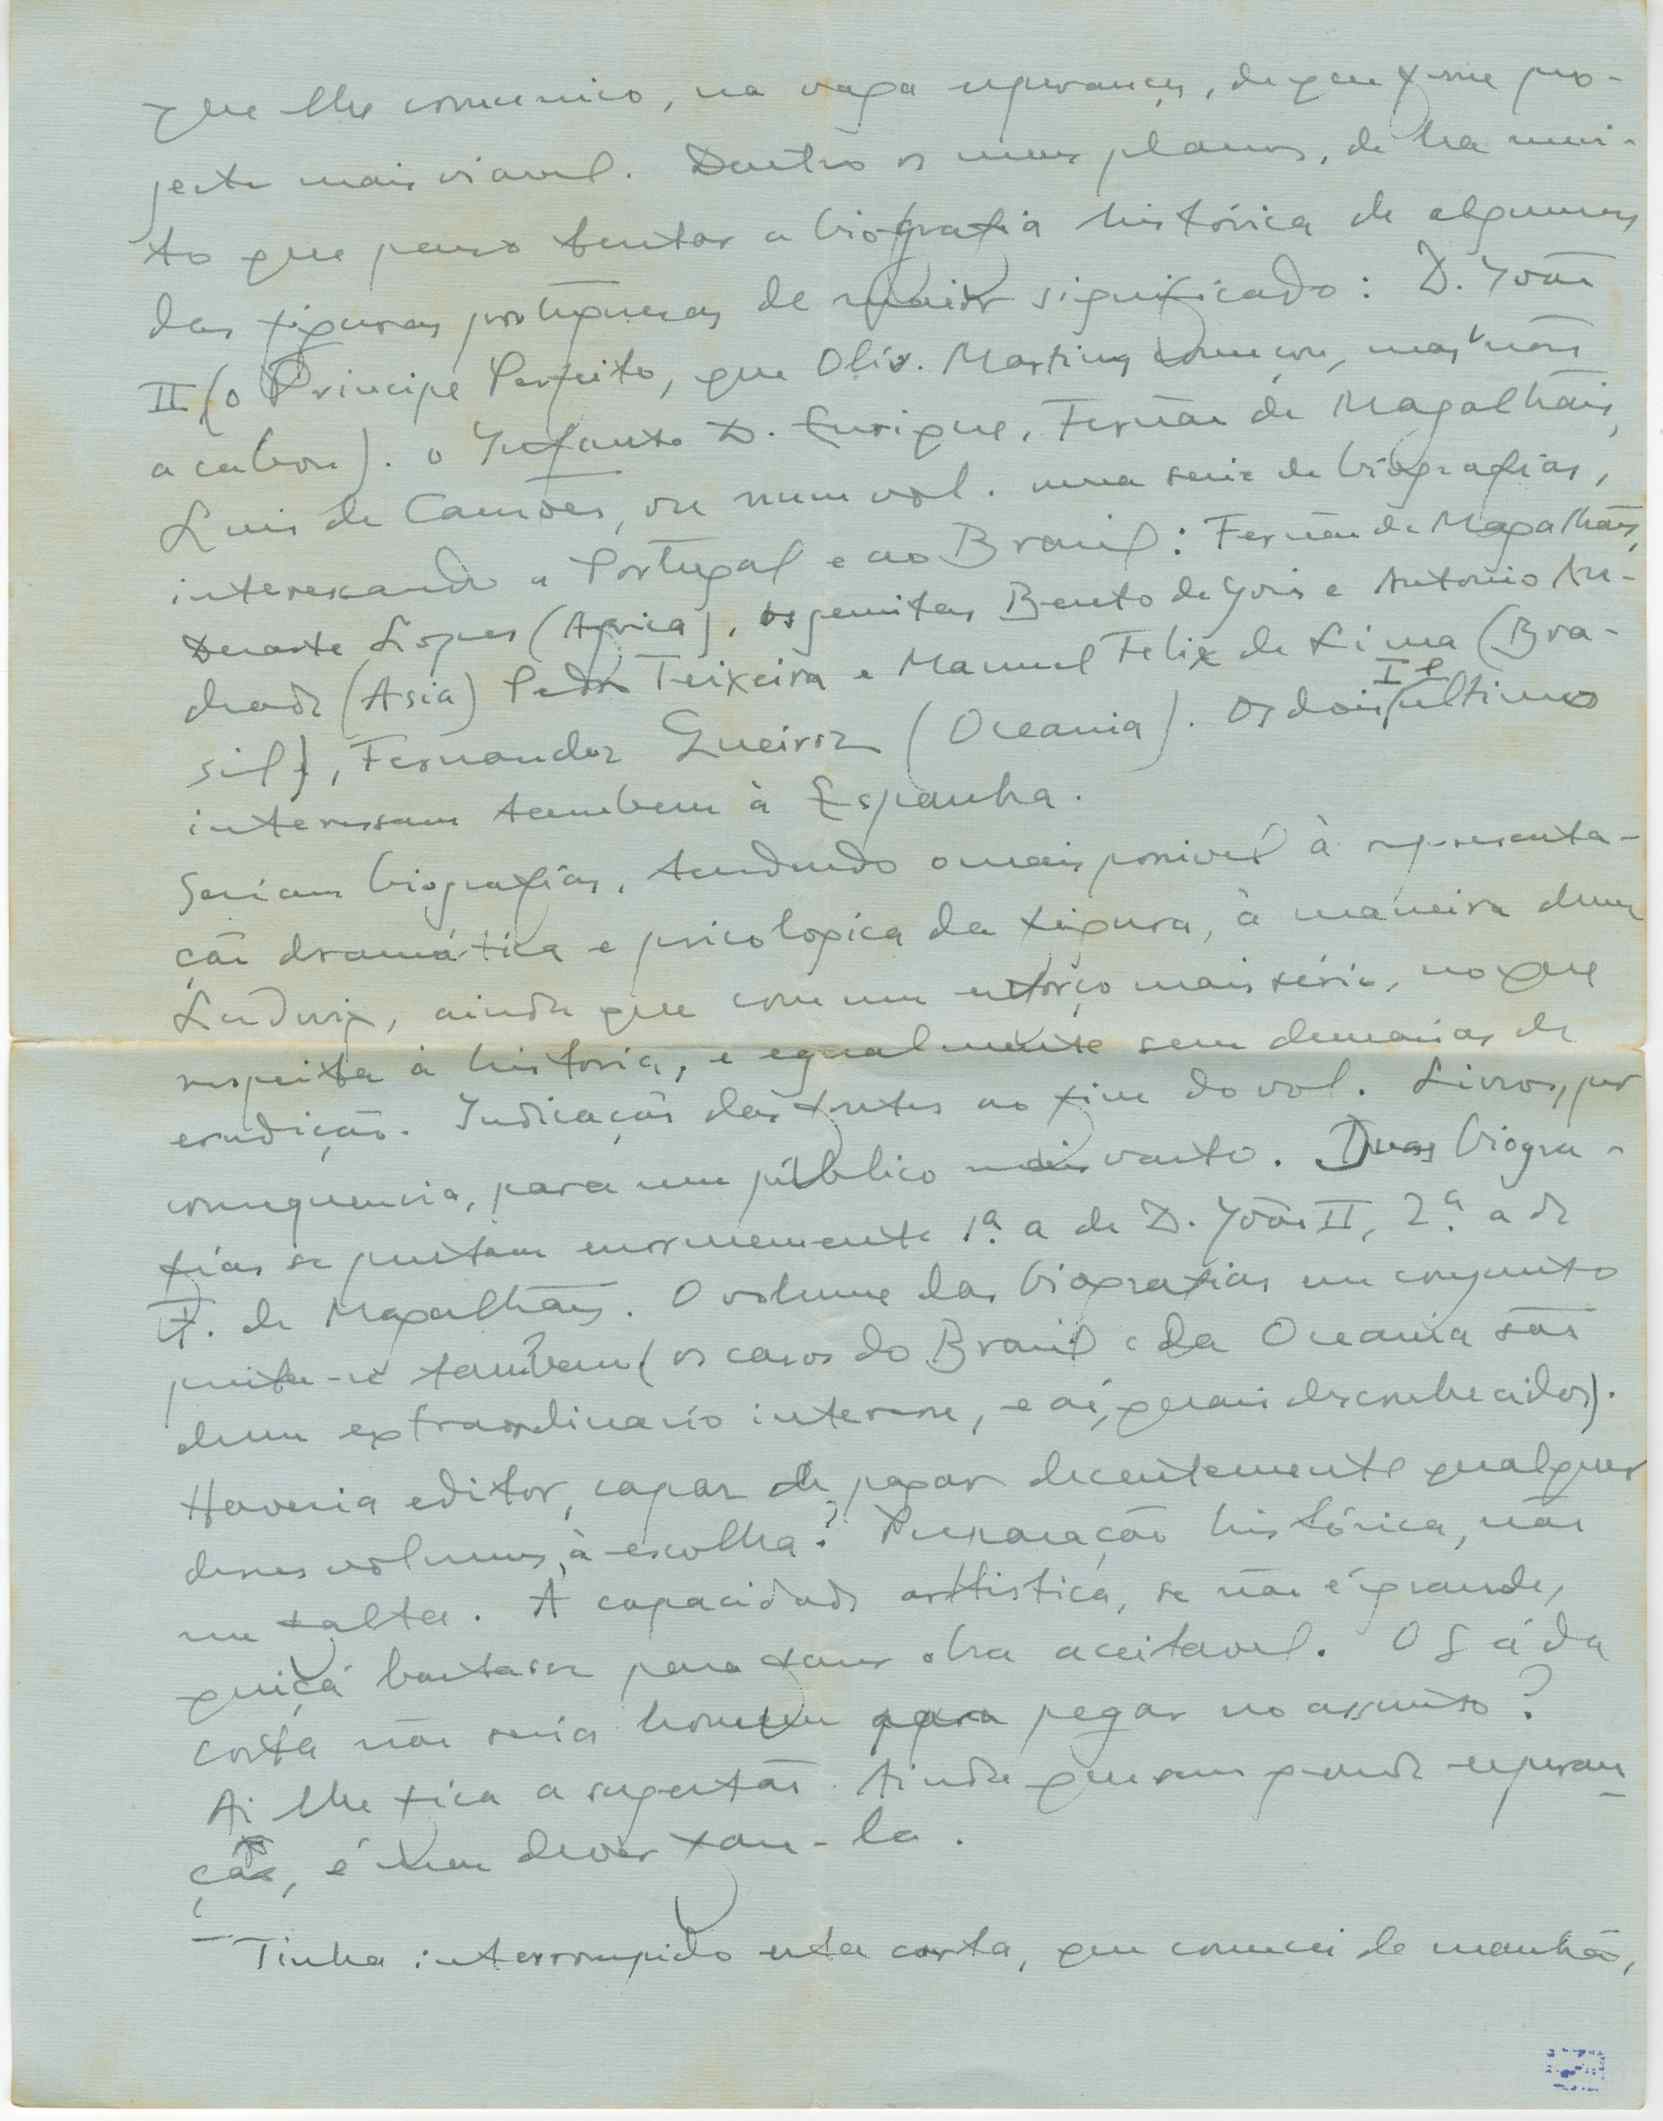 que lhe comunico, na vaga esperança, de que fosse pro-
jecto mais viavel. Dentro os meus planos, de ha mui-
to que penso tentar a biografia histórica de algumas
das figuras portuguesas de maior significado: D. João
II (o Principe Perfeito, que Oliv. Martins começou, mas não
acabou). o Infante D. Enrique, Fernão de Magalhães,
Luis de Camões, ou num vol. uma serie de biografias,
interessando a Portugal e ao Brasil: Fernão de Magalhães,
Duarte Lopes (Africa), os jesuitas Bento de Gois e Antonio An-
drade (Asia) Pedro Teixeira e Manuel Felix de Lima (Bra-
sil), Fernandez Queiroz (Oceania). Os dois ultimos
interessam tambem à Espanha.
Seriam biografias, tendendo o mais possivel à representa-
ção dramática e psicologica da figura, à maneira dum
Ludwig, ainda que com um esforço mais sério, no que
respeita à historia, e egualmente sem demasias de
erudição. Indicação das fontes no fim do vol. Livros, por
consequencia, para um público mais vasto. Duas biogra-
fias se prestam enormemente 1ª. a de D. João II, 2ª. a de
F. de Magalhães. O volume das biografias em conjunto
presta-se tambem (os casos do Brasil e da Oceania são
dum extraordinario interesse, e ai, quasi desconhecidos).
Haveria editor, capaz de pagar decentemente qualquer
desses volumes, à escolha? Preparação histórica, não
me falta. A capacidade artistica, se não é grande,
quiçá bastasse para fazer obra aceitavel. O Sá da
Costa não seria homem para pegar no assunto?
Ai lhe fica a sugestão. Ainda que sem grande esperan-
ça, é meu dever fazê-la.
Tinha interrompido esta carta, que comecei de manhão,